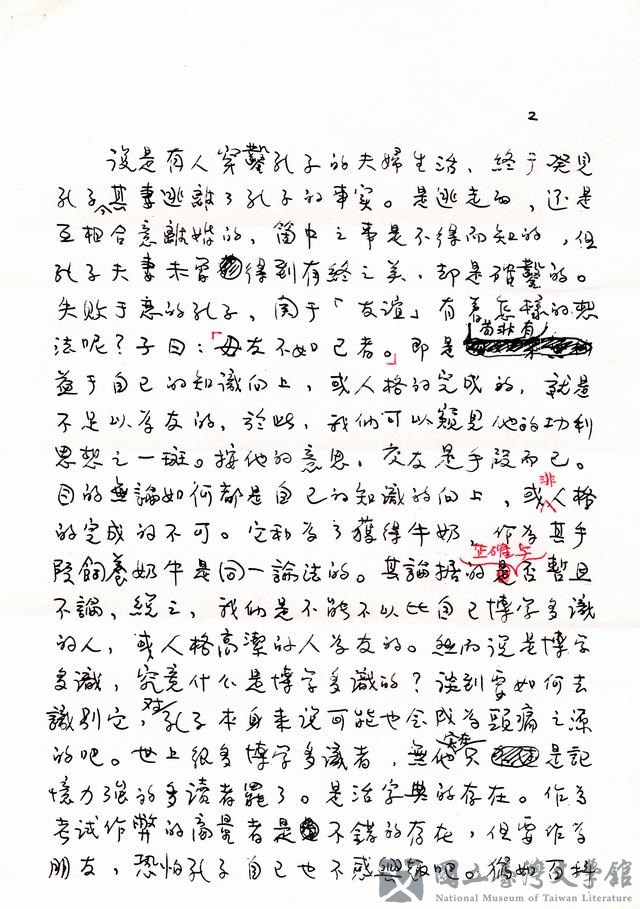 2
說是有人穿鑿孔子的夫婦生活，終于発見
孔子令其妻逃離了孔子的事实。是逃走的，还是
互相合意離婚的，箇中之事是不得而知的，但
孔子夫妻未嘗得到有終之美，却是確鑿的。
失敗于戀的孔子，関于「友誼」有着怎樣的想
法呢？子曰：「毋友不如己者。」即是苟非有
益于自己的知識向上，或人格的完成的，就是
不足以為友的，於此，我們可以窺見他的功利
思想之一斑。按他的意思，交友是手段而已。
目的無論如何都是自己的知識的向上，或非人格
的完成的不可。它和為了獲得牛奶，作為其手
段飼養奶牛是同一論法的。其論据的正確与否暫且
不論，總之，我們是不能不以比自己博学多識
的人，或人格高潔的人為友的。然而說是博学
多識，究竟什么是博学多識的？談到要如何去
識別它，对孔子本身来說可能也会成為頭痛之源
的吧。世上很多博学多識者，無他，实在只是記
憶力強的多讀者罷了。是活字典的存在。作為
考試作弊的商量者是不錯的存在，但要作為
朋友，恐怕孔子自己也不感興趣吧。猶如百科
國立臺灣文學館
National Museum of Taiwan Literature